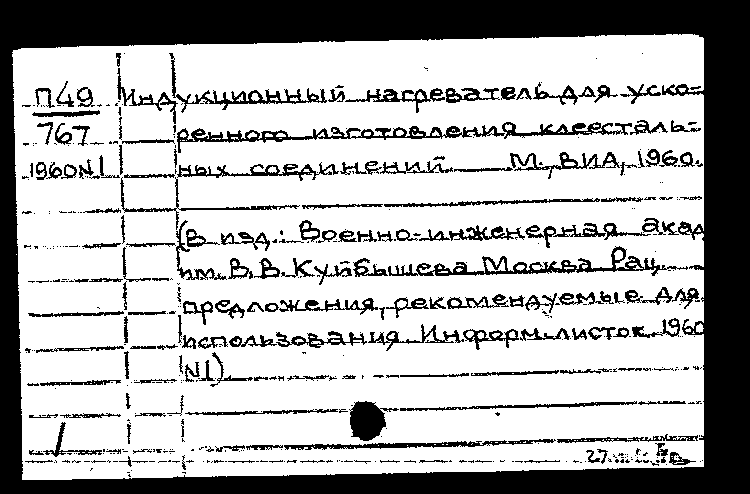 П49 Индукционный нагреватель для уско=
767 ренного изготовления клеесталь-
1960N1 ных соединений М., ВИА, 1960.
(В изд.: Военно-инженерная акад
им. В.В. Куйбышева Москва Рац.
предложения, рекомендуемые для
использования. Информ. листок 1960
N1).
1
27